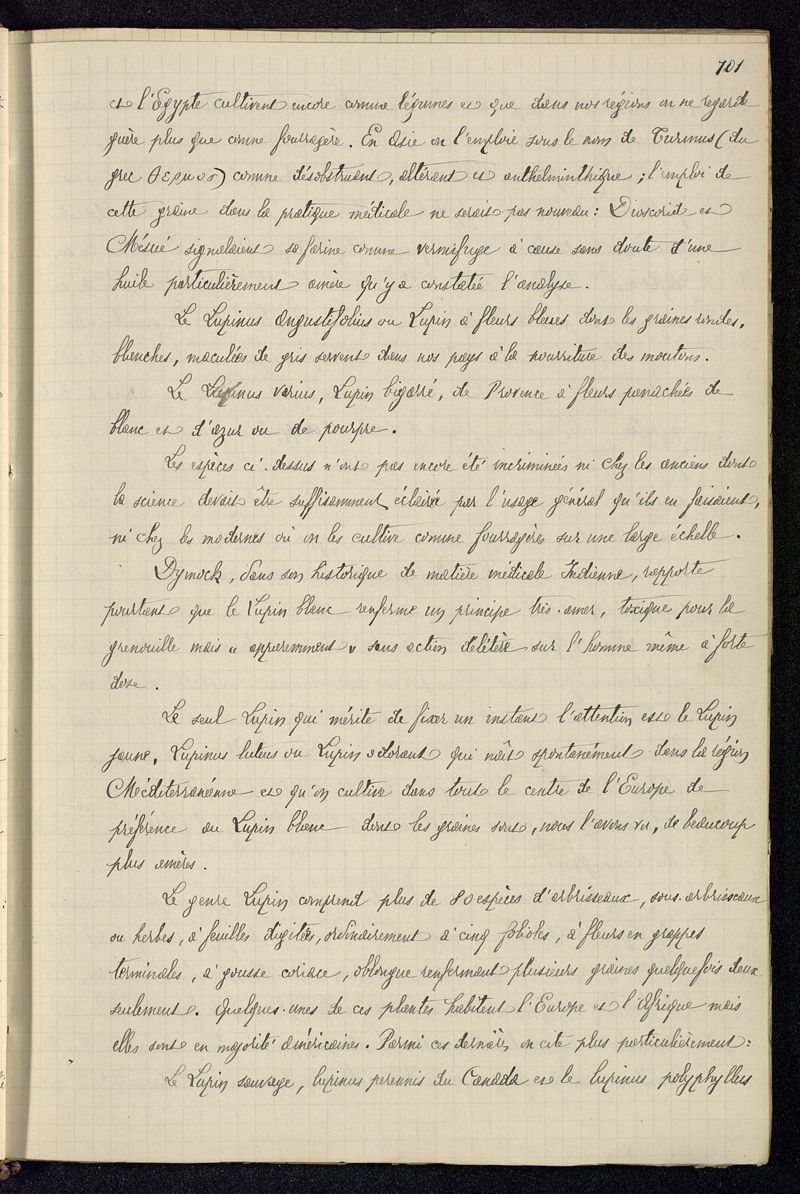 701
et l'Egypte cultivent encore comme légumes et que dans nos régions on ne regarde
guère plus que comme fourragère. En Asie on l'emploie sous le nom de Turmus (du
grec) comme désobstruant, altérant et anthelminthique ; l'emploi de
cette graine dans la pratique médicale ne serait pas nouveau : Dioscorid et
Mésué signalaient sa farine comme vermifuge à cause sans doute d'une
huile particulièrement amère qu'y a constatée l'analyse.
Le Lupinus angustifolius ou Lupin à fleurs bleues dont les graines rondes,
blanches, maculées de gris servent dans nos pays à la nourriture des moutons.
Le Lupinus varius, Lupin bigarré, de Provence à fleurs panachées de
blanc et d'azur ou de pourpre.
Les espèces ci-dessus n'ont pas encore été incriminées ni chez les anciens dont
la science devait être suffisamment éclairée par l'usage général qu'ils en faisaient,
ni chez les modernes où on les cultive comme fourragères sur une large échelle.
Dymock, dans son historique de matière médicale Indienne, rapporte
pourtant que le Lupin blanc renferme un principe très-amer, toxique pour la
grenouille mais « apparemment » sans action délétère sur l'homme même à forte
dose.
Le seul Lupin qui mérite de fixer un instant l'attention est le Lupin
jaune, Lupinus luteus ou Lupin odorant qui naît spontanément dans la région
Méditerranéenne et qu'on cultive dans tout le centre de l'Europe de
préférence au Lupin blanc dont les graines sont, nous l'avons vu, de beaucoup
plus amères.
Le genre Lupin comprend plus de 80 espèces d'arbrisseaux, sous-arbrisseaux
ou herbes, à feuilles digitées, ordinairement à cinq folioles, à fleurs en grappes
terminales, à gousse coriace, oblongue renfermant plusieurs graines quelquefois deux
seulement. Quelques-unes de ces plantes habitent l'Europe et l'Afrique mais
elles sont en majorité américaines. Parmi ces dernières on cite plus particulièrement :
Le Lupin sauvage, lupinus perennis du Canada et le lupinus polyphyllus